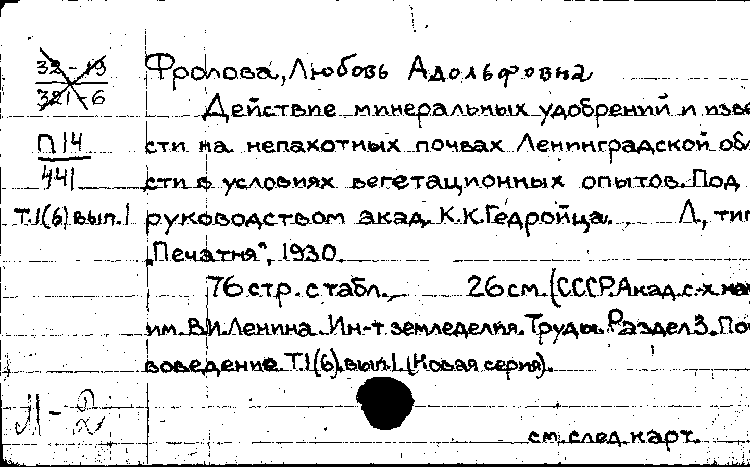 32-19 Фролова, Любовь Адольфовна
321-6
Действие минеральных удобрений и изве
П14 сти на непахотных почвах Ленинградской обл
441 сти в условиях вегетационных опытов. Под
Т.1(6) вып.1 руководством акад. К.К.Гедройца. Л., тип
"Печатня", 1930.
76 стр. с табл. 26 см. (СССР. Акад. с.-х. на
им. В.И.Ленина. Ин-т земледелия. Труды. Раздел 3. По
воведение. Т.1(6). вып.1. (Новая серия).
Л-2
см. след. карт.